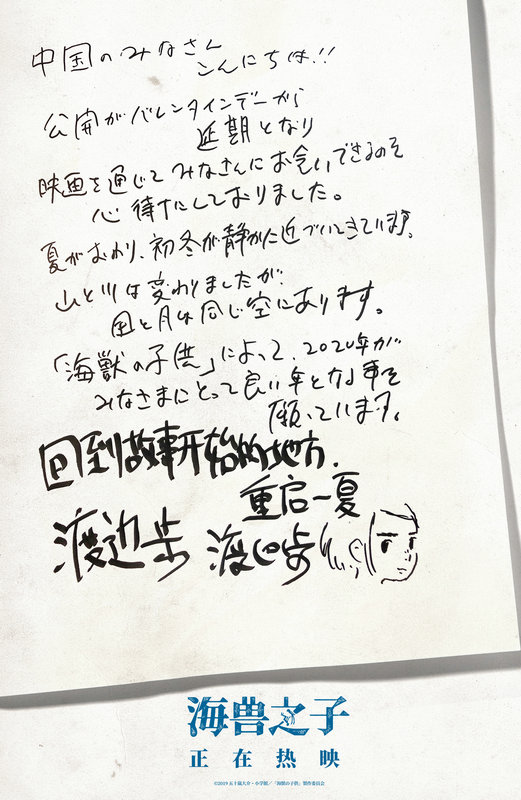 中国のみなさん
こんにちは!!
公開がバレンタインデーから
延期となり
映画を通じてみなさんにお会いできるのを
心待ちにしておりました。
夏がおわり、初冬が静かに近づいてきています。
山と川は変わりましたが
風と月は同じ空にあります。
「海獣の子供」によって、2020年が
みなさまにとって良い年となる事を
願っています。
回到故事开始的地方.
重启一夏
渡辺歩 渡辺歩
海兽之子
正在热映
©2019 五十嵐大介・小学館／「海獣の子供」製作委員会